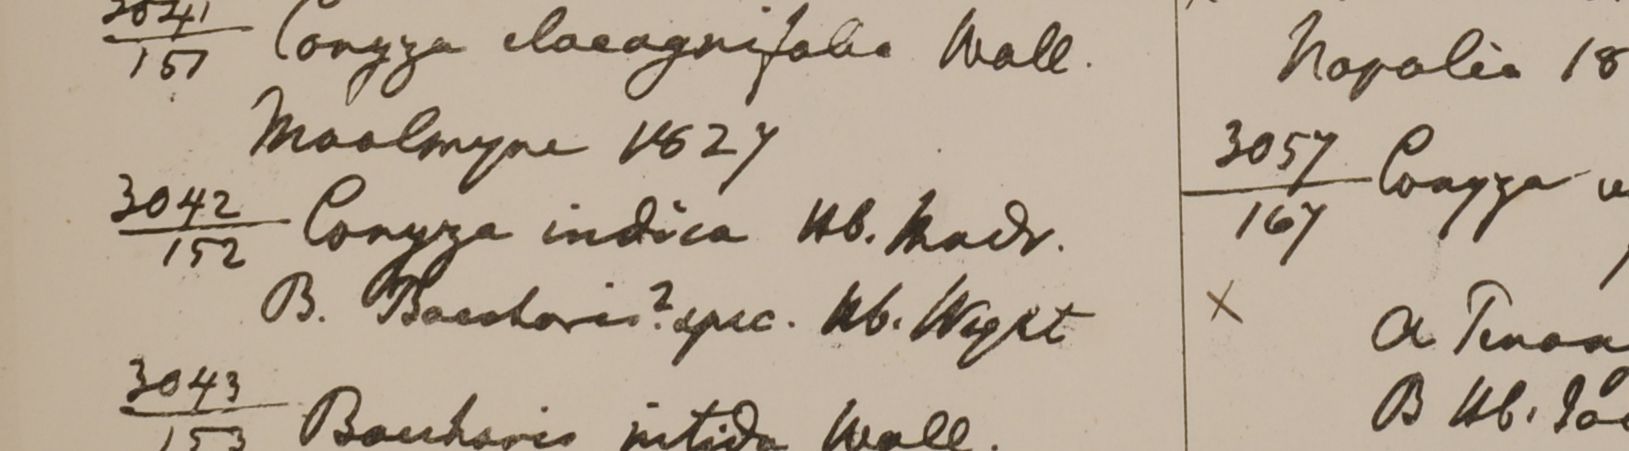 3041
151 Conyza elaeagnifolia Wall.
Moolmyne 1827
3042
152 Conyza indica Hb. Madr.
B. Baccharis? spec. Hb. Wight
3043
153 Baccharis nitida Wall.
Napalia 18
3057
167 Conyza
x
B Hb.